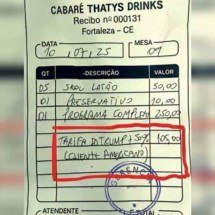 CABARÉ THATYS DRINKS
Recibo nº 000131
Fortaleza - CE
DATA 10, 07, 25 MESA 09
QT DESCRIÇÃO VALOR
05 SKOL LATÃO 50,00
01 PRESERVATIVO 10,00
01 PROGRAMA COMPLETO 250,00
TARIFA DO TRUMP + 50% 105,00
(CLIENTE AMERICANO)
ATENDENTE TOTAL